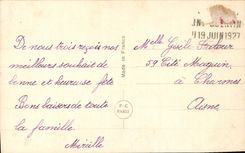 De nous trois reçois nos
meilleurs souhait de
bonne et heureuse fête
Bons baisers de toute
la famille.
Mireille
MADE IN FRANCE
P-C
PARIS
19 JUIN 1927
Melle Gisèle
59 Cité
à Charmes
Aisne